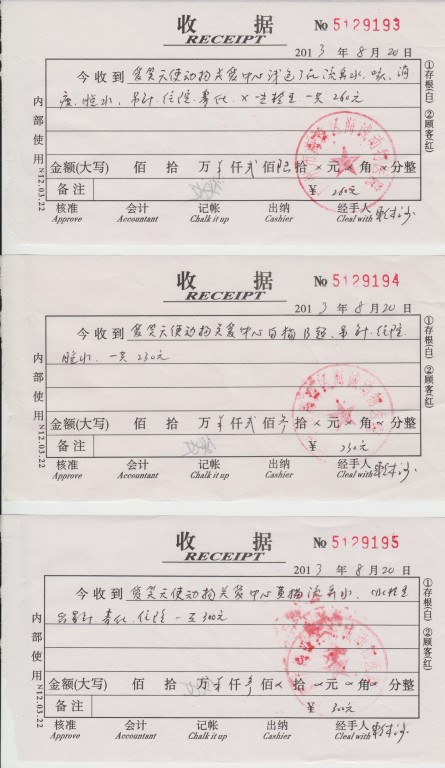 收 据 No 5129193
RECEIPT
2013 年 8 月 20 日
今收到 爱笑天使动物关爱中心 流鼻水、咳、消
炎、眼水、吊针、住院、雾化、X 一共260元
金额(大写) 佰 拾 万 仟贰佰陆拾 元 角 分整
备注 ¥ 260元
核准 会计 记帐 出纳 经手人
Approve Accountant Chalk it up Cashier Cleal with
内部使用 N12.03.22
①存根(白) ②顾客(红)
收 据 No 5129194
RECEIPT
2013 年 8 月 20 日
今收到 爱笑天使动物关爱中心 白猫 B超、吊针、住院
眼水、一共230元
金额(大写) 佰 拾 万 仟贰佰叁拾 元 角 分整
备注 ¥ 230元
核准 会计 记帐 出纳 经手人
Approve Accountant Chalk it up Cashier Cleal with
内部使用 N12.03.22
①存根(白) ②顾客(红)
收 据 No 5129195
RECEIPT
2013 年 8 月 20 日
今收到 爱笑天使动物关爱中心 流鼻水、
吊针 雾化、住院 一共300元
金额(大写) 佰 拾 万 仟叁佰 拾 元 角 分整
备注 ¥ 300元
核准 会计 记帐 出纳 经手人
Approve Accountant Chalk it up Cashier Cleal with
内部使用 N12.03.22
①存根(白) ②顾客(红)